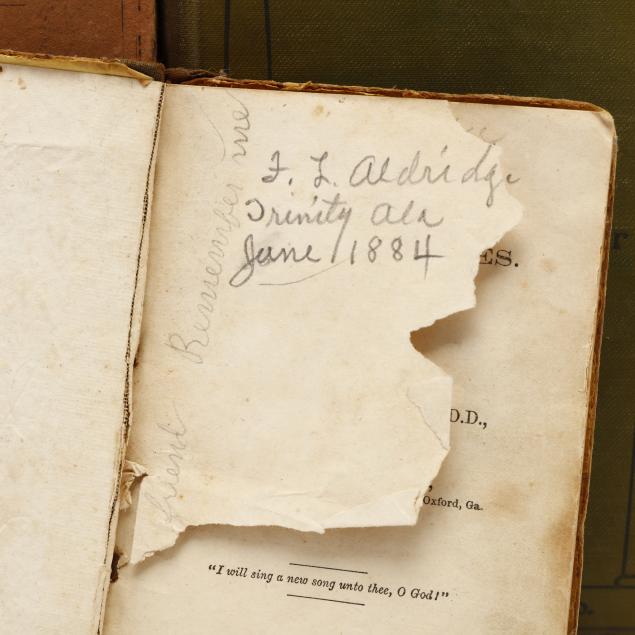 F. L. Aldridge
Trinity Ala
June 1884
friend Remember me
ES.
D.D.,
Oxford, Ga.
"I will sing a new song unto thee, O God!"